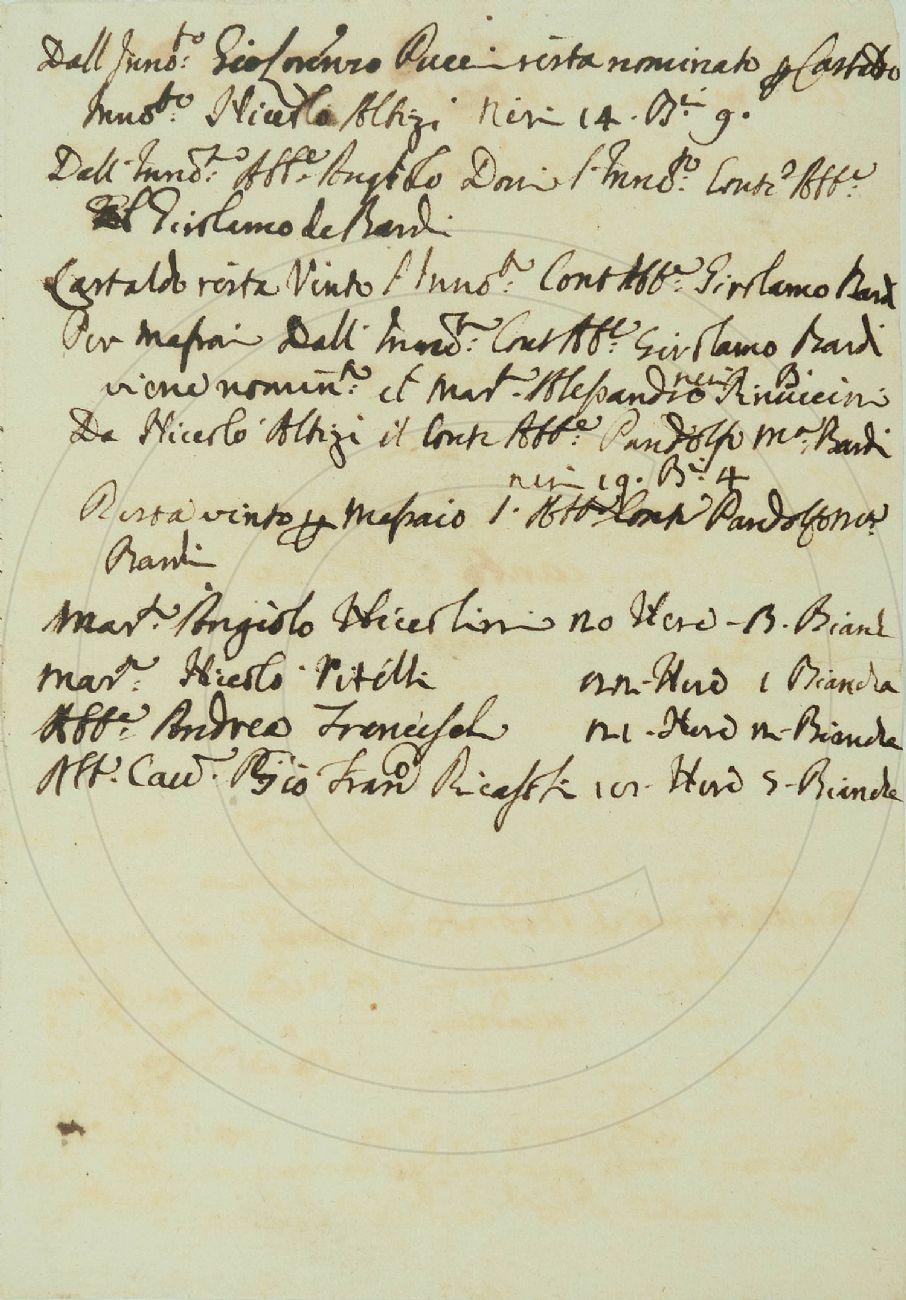 Dall Inno:to Gio Lorenzo Pucci resta nominato p Castaldo
Inno:to Niccolò Altizi neri 14. B:i 9.
Dall: Inno:to Abb:e Angiolo Doni l'Inno:to Conte Abb:e
Girolamo de Bardi
Castaldo resta Vinto l'Inno:to Cont Abb:e Girolamo Bardi
Per Massai Dall' Inno:to Cont Abb:e Girolamo Bardi
viene nomin:to il Mar:e Alessandro Rinuccini
neri B:i
Da Niccolò Altizi il Conte Abb:e Pandolfo M:a Bardi
neri 19. B:i 4
Resta vinto p Massaio l' Abb:e Conte Pandolfo
Bardi
Mar:e Angiolo Niccolini 20 Nere - B. Bianche
Mar:e Niccolò Vitelli 22 - Nere 1 Bianca
Abb:e Andrea Franceschi 21 - Nere 2 - Bianche
Abb:e Cav:e Gio Fran:co Ricasoli Nere 5 - Bianche